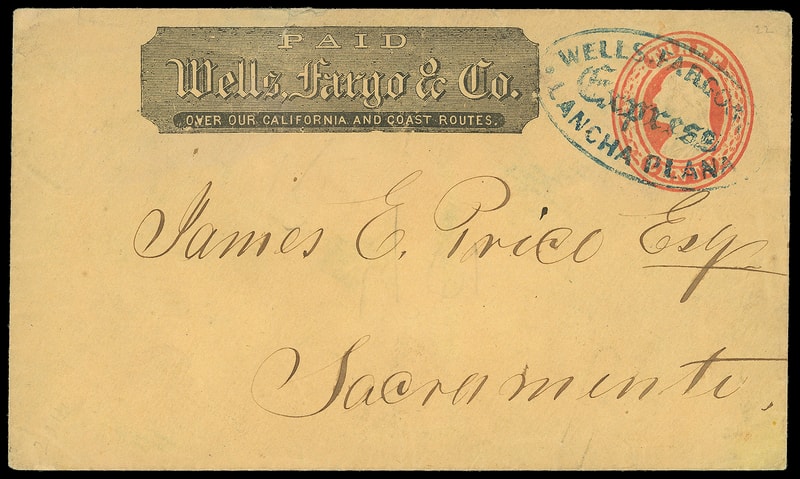 PAID
Wells, Fargo & Co.
OVER OUR CALIFORNIA AND COAST ROUTES.
WELLS, FARGO &
Express
LANCHA PLANA
James E. Price Esq
Sacramento,
22